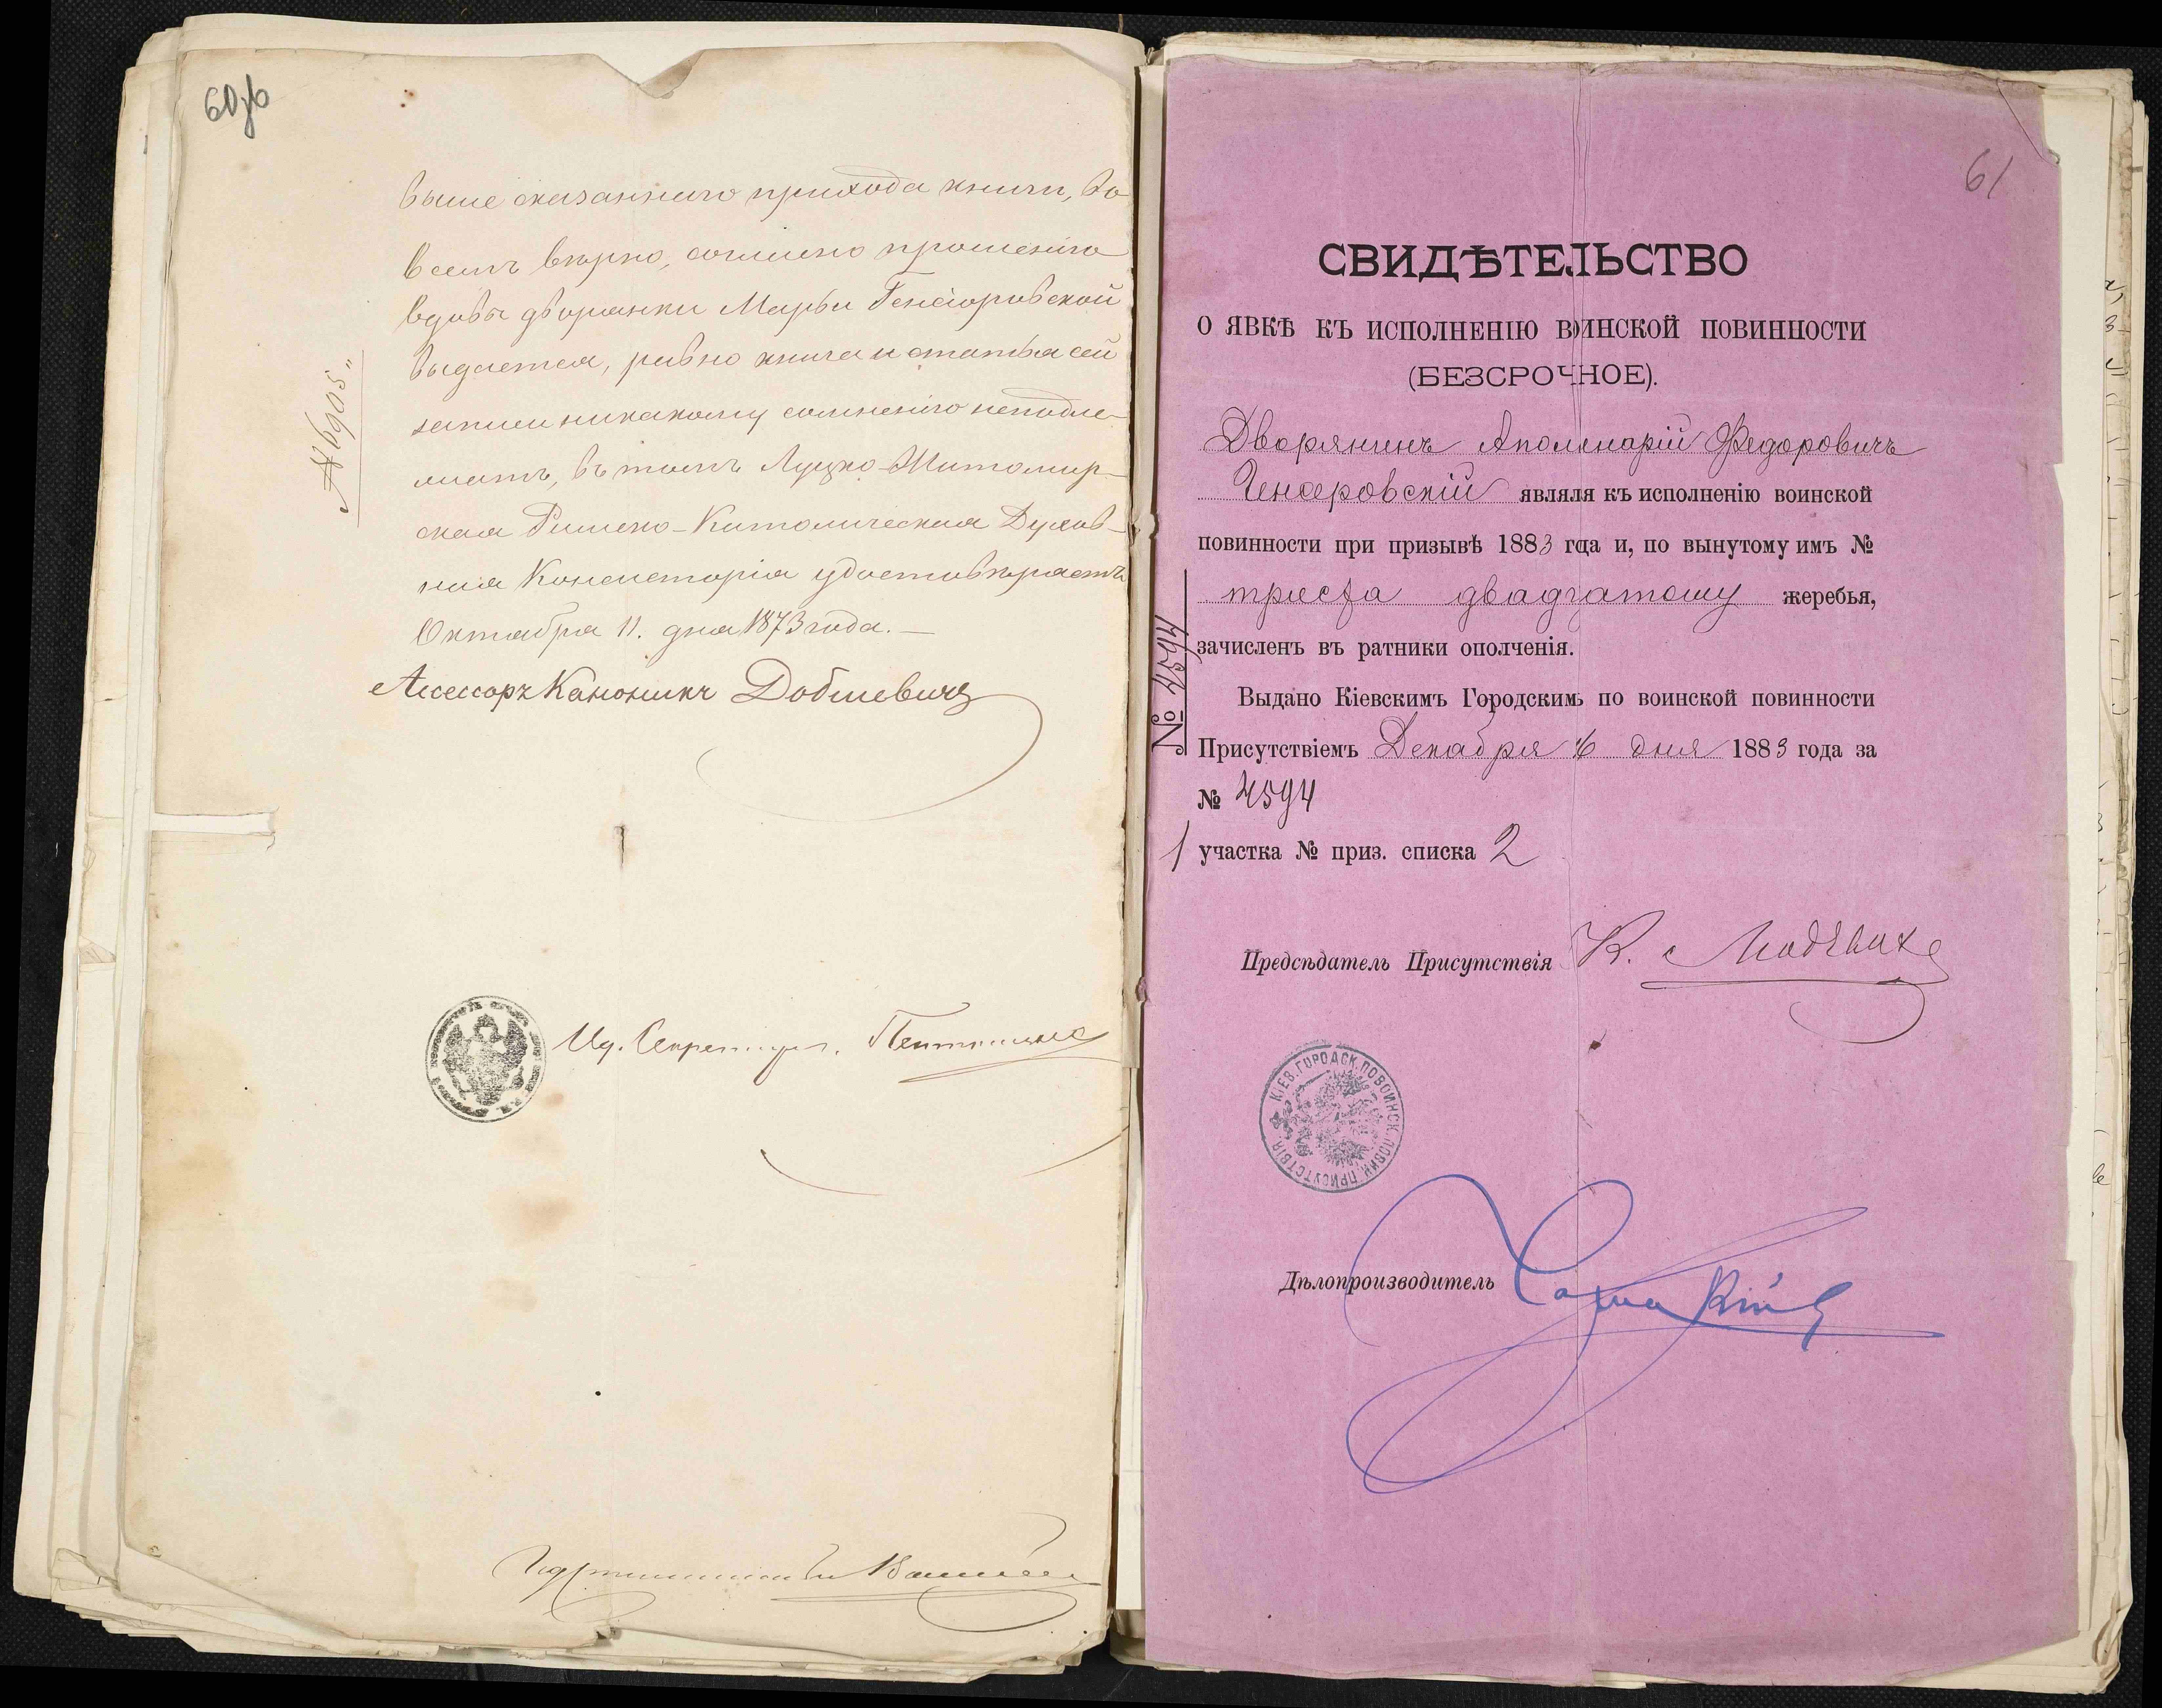 60об
выше сказаннаго прихода книги, во
всемъ вѣрно, согласно прошенію
вдовы дворянки Марьи Генсіоровской
выдается, равно книга и статья сей
записи никакому сомнѣнію неподле-
житъ, въ томъ Луцко-Житомир-
ская Римско-Католическая Духов-
ная Консисторія удостовѣряетъ
Октября 11. дня 1873 года. —
Асессоръ Каноникъ
№ 6905
Секретарь
61
СВИДѢТЕЛЬСТВО
О ЯВКѢ КЪ ИСПОЛНЕНІЮ ВОИНСКОЙ ПОВИННОСТИ
(БЕЗСРОЧНОЕ).
Дворянинъ Аполинарій Федоровичъ
Генсеровскій являлся къ исполненію воинской
повинности при призывѣ 1883 года и, по вынутому имъ №
триста двадцатому жеребья,
зачисленъ въ ратники ополченія.
Выдано Кіевскимъ Городскимъ по воинской повинности
Присутствіемъ Декабря 16 дня 1883 года за
№ 4594
1 участка № приз. списка 2
№ 4594
Предсѣдатель Присутствія К.
КІЕВ. ГОРОДСК. ПО ВОИНСК. ПОВИН. ПРИСУТСТВІЯ
Дѣлопроизводитель